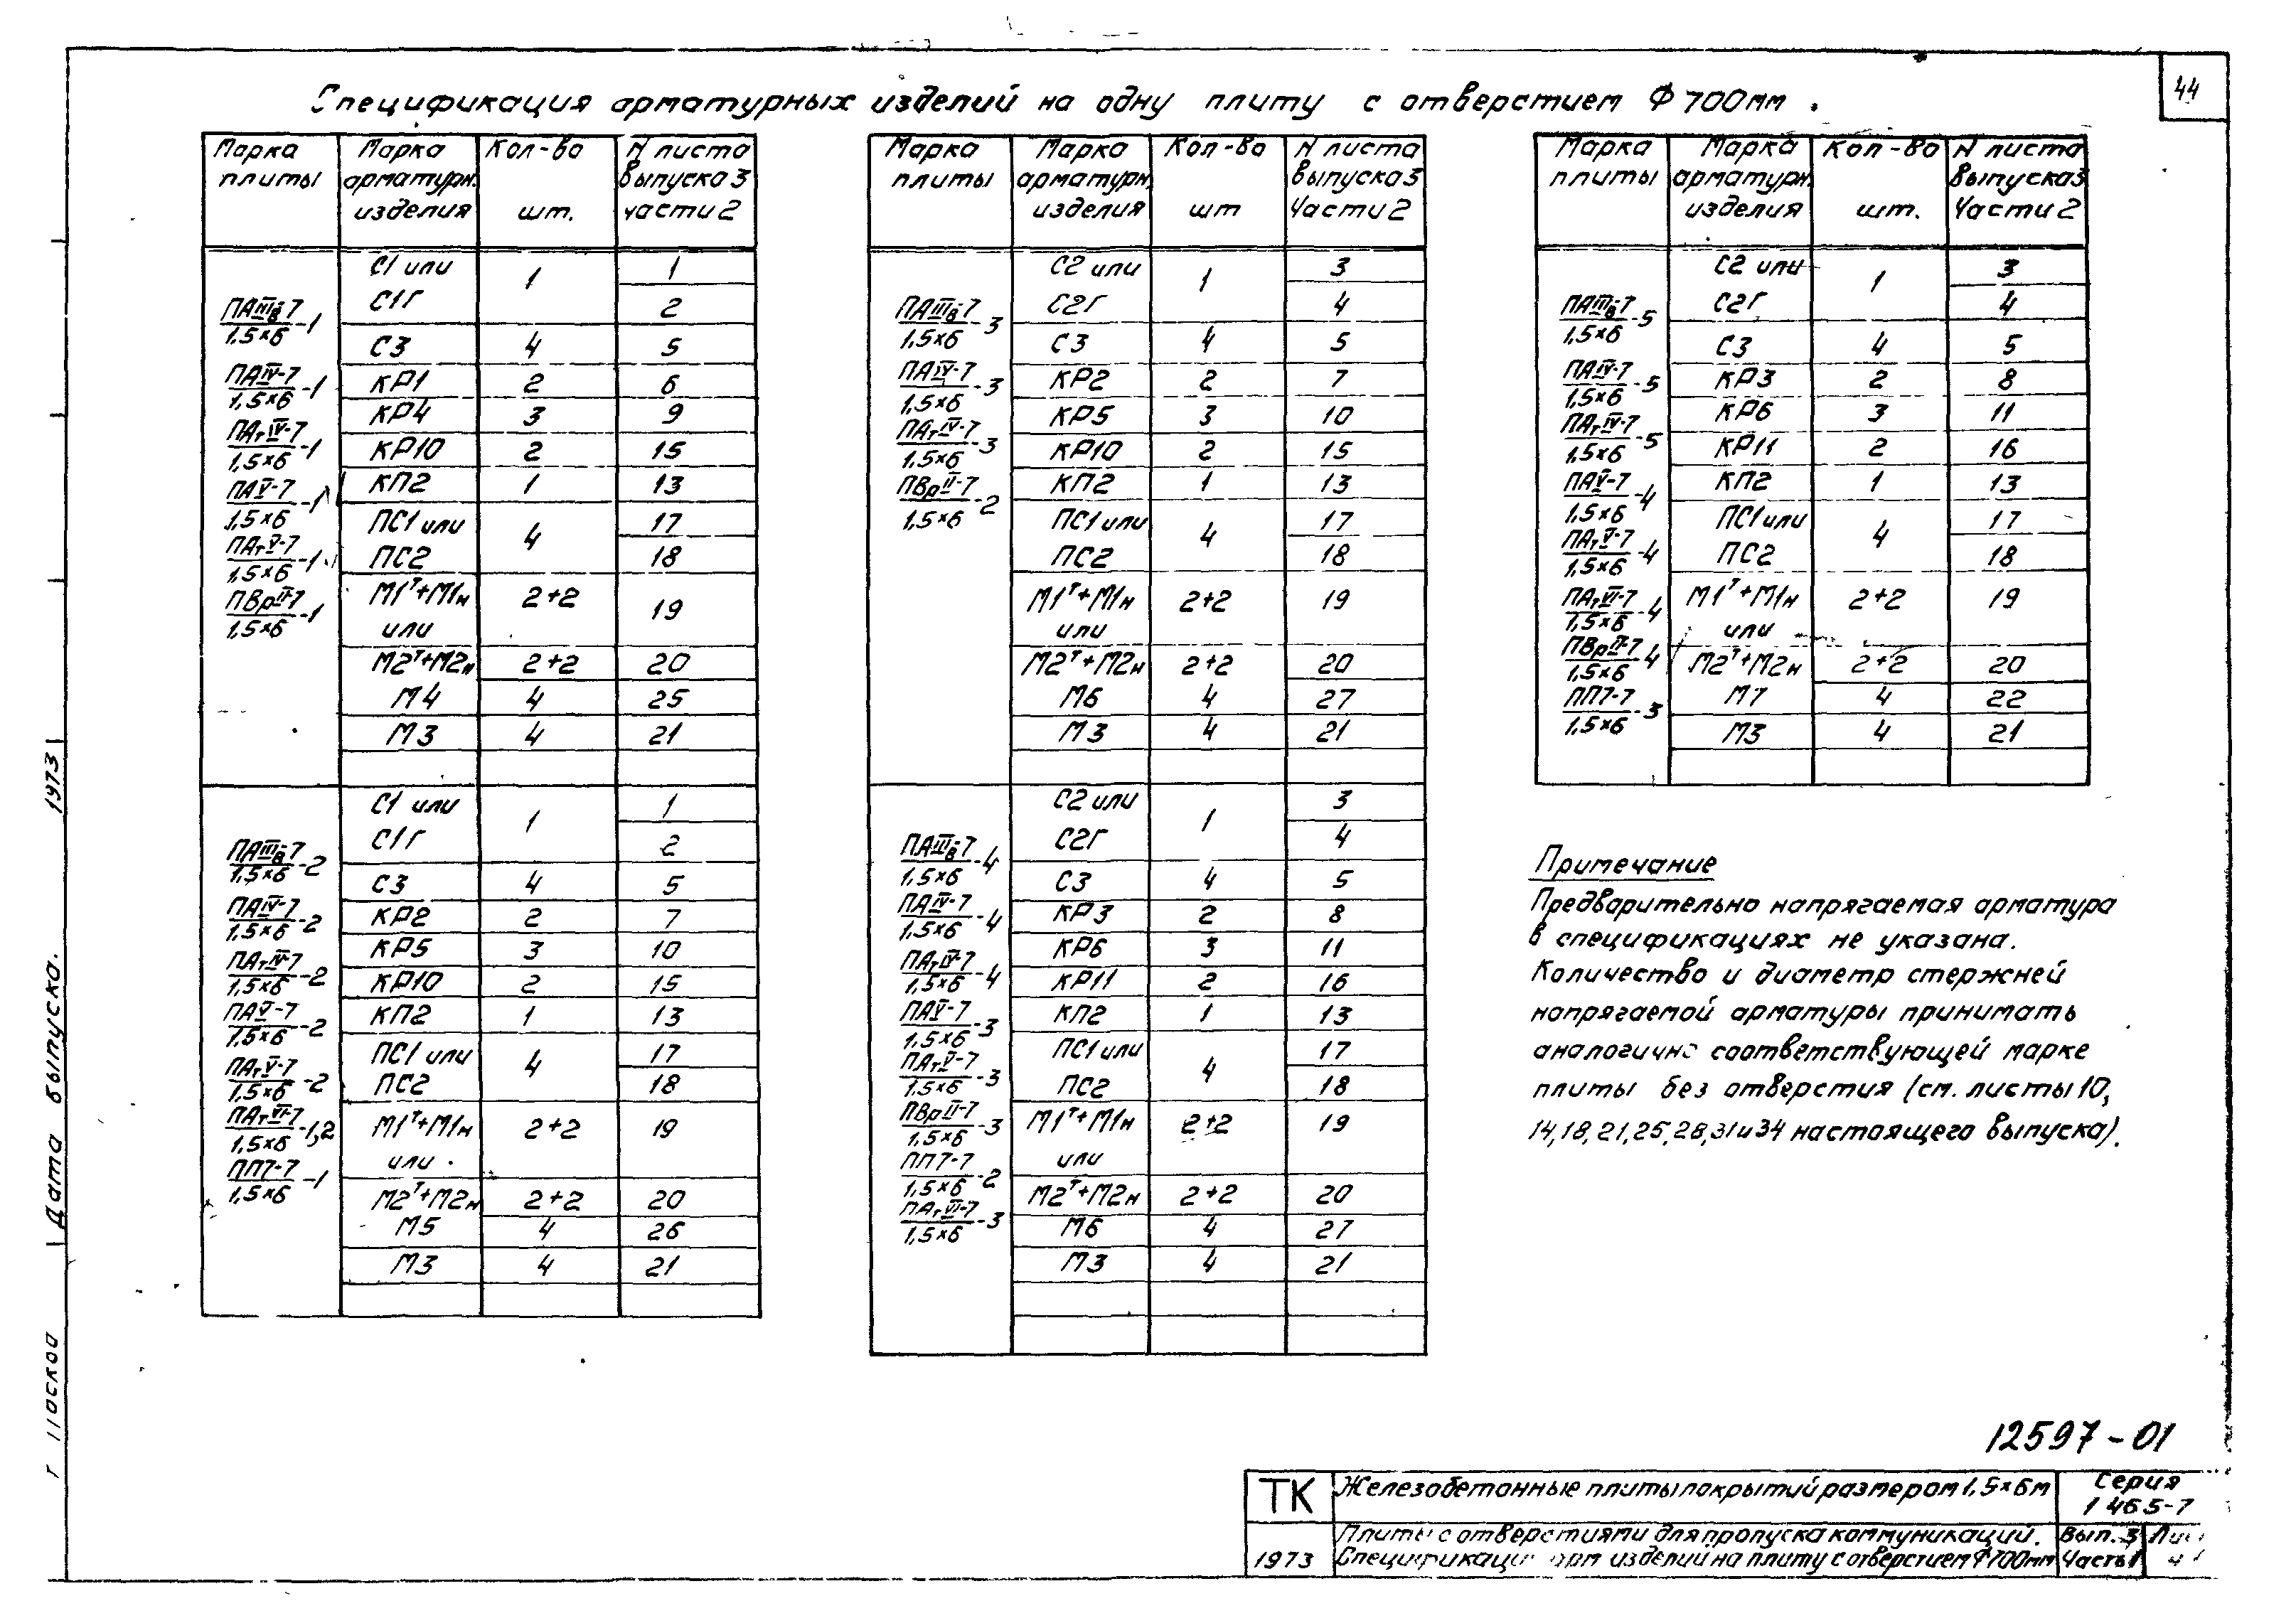 44
Спецификация арматурных изделий на одну плиту с отверстием Ф 700мм.
Марка плиты | Марка арматурн. изделия | Кол-во шт. | N листа выпуска 3 части 2
ПАIIIв-7/1,5×6-1
ПАIV-7/1,5×6-1
ПАтIV-7/1,5×6-1
ПАV-7/1,5×6-1
ПАтV-7/1,5×6-1
ПВрII-7/1,5×6-1
С1 или | 1 | 1
С1Г | 2
С3 | 4 | 5
КР1 | 2 | 6
КР4 | 3 | 9
КР10 | 2 | 15
КП2 | 1 | 13
ПС1 или | 4 | 17
ПС2 | 18
М1т+М1н | 2+2 | 19
или
М2т+М2н | 2+2 | 20
М4 | 4 | 25
М3 | 4 | 21
ПАIIIв-7/1,5×6-2
ПАIV-7/1,5×6-2
ПАтIV-7/1,5×6-2
ПАV-7/1,5×6-2
ПАтV-7/1,5×6-2
ПАтVI-7/1,5×6-1,2
ПП7-7/1,5×6-1
С1 или | 1 | 1
С1Г | 2
С3 | 4 | 5
КР2 | 2 | 7
КР5 | 3 | 10
КР10 | 2 | 15
КП2 | 1 | 13
ПС1 или | 4 | 17
ПС2 | 18
М1т+М1н | 2+2 | 19
или
М2т+М2н | 2+2 | 20
М5 | 4 | 26
М3 | 4 | 21
Марка плиты | Марка арматурн. изделия | Кол-во шт | N листа выпуска 3 части 2
ПАIIIв-7/1,5×6-3
ПАIV-7/1,5×6-3
ПАтIV-7/1,5×6-3
ПВрII-7/1,5×6-2
С2 или | 1 | 3
С2Г | 4
С3 | 4 | 5
КР2 | 2 | 7
КР5 | 3 | 10
КР10 | 2 | 15
КП2 | 1 | 13
ПС1 или | 4 | 17
ПС2 | 18
М1т+М1н | 2+2 | 19
или
М2т+М2н | 2+2 | 20
М6 | 4 | 27
М3 | 4 | 21
ПАIIIв-7/1,5×6-4
ПАIV-7/1,5×6-4
ПАтIV-7/1,5×6-4
ПАV-7/1,5×6-3
ПАтV-7/1,5×6-3
ПВрII-7/1,5×6-3
ПП7-7/1,5×6-2
ПАтVI-7/1,5×6-3
С2 или | 1 | 3
С2Г | 4
С3 | 4 | 5
КР3 | 2 | 8
КР6 | 3 | 11
КР11 | 2 | 16
КП2 | 1 | 13
ПС1 или | 4 | 17
ПС2 | 18
М1т+М1н | 2+2 | 19
или
М2т+М2н | 2+2 | 20
М6 | 4 | 27
М3 | 4 | 21
Марка плиты | Марка арматурн. изделия | Кол-во шт. | N листа выпуска 3 части 2
ПАIIIв-7/1,5×6-5
ПАIV-7/1,5×6-5
ПАтIV-7/1,5×6-5
ПАV-7/1,5×6-4
ПАтV-7/1,5×6-4
ПАтVI-7/1,5×6-4
ПВрII-7/1,5×6-4
ПП7-7/1,5×6-3
С2 или | 1 | 3
С2Г | 4
С3 | 4 | 5
КР3 | 2 | 8
КР6 | 3 | 11
КР11 | 2 | 16
КП2 | 1 | 13
ПС1 или | 4 | 17
ПС2 | 18
М1т+М1н | 2+2 | 19
или
М2т+М2н | 2+2 | 20
М7 | 4 | 22
М3 | 4 | 21
Примечание
Предварительно напрягаемая арматура
в спецификациях не указана.
Количество и диаметр стержней
напрягаемой арматуры принимать
аналогично соответствующей марке
плиты без отверстия (см. листы 10,
14, 18, 21, 25, 28, 31 и 34 настоящего выпуска).
Дата выпуска. 1973
12597-01
ТК | Железобетонные плиты покрытий размером 1,5×6м | Серия 1 465-7
1973 | Плиты с отверстиями для пропуска коммуникаций. | Вып. 3
Спецификаци арм изделий на плиту с отверстием Ф700мм | Часть 1